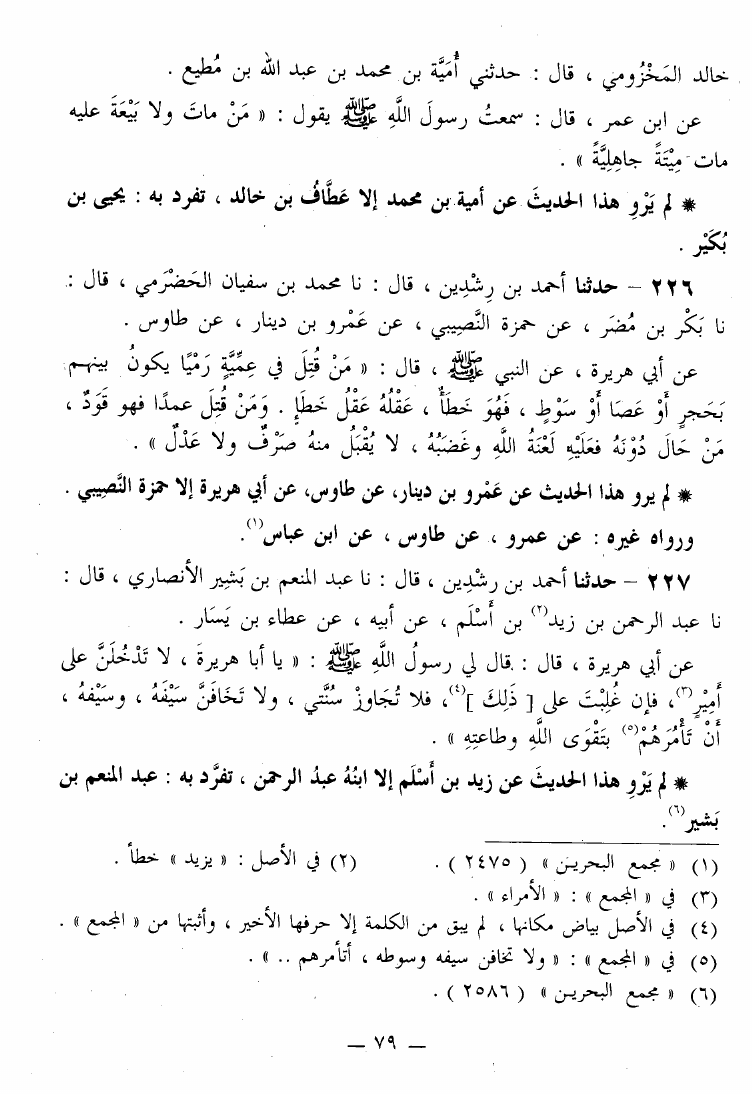 خالد المَخْزُومي ، قال : حدثني أُمَيَّة بن محمد بن عبد الله بن مُطيع .
عن ابن عمر ، قال : سمعتُ رسولَ اللَّهِ ﷺ يقول : « مَنْ ماتَ ولا بَيْعَةَ عليه
مات مِيْتَةً جاهِلِيَّةً » .
* لم يَرْوِ هذا الحديثَ عن أمية بن محمد إلا عَطَّافُ بن خالد ، تفرد به : يحيى بن
بُكَيْر .
٢٢٦ – حدثنا أحمد بن رِشْدِين ، قال : نا محمد بن سفيان الحَضْرَمي ، قال :
نا بَكْر بن مُضَر ، عن حمزة النَّصِيبي ، عن عَمْرو بن دينار ، عن طاوس .
عن أبي هريرة ، عن النبي ﷺ ، قال : « مَنْ قُتِلَ في عِمِّيَّةٍ رَمْيًا يكونُ بينهم
بَحَجرٍ أَوْ عَصَا أَوْ سَوْطٍ ، فَهُوَ خَطَأٌ ، عَقْلُهُ عَقْلُ خَطَإٍ . وَمَنْ قُتِلَ عمدًا فهو قَوَدٌ ،
مَنْ حَالَ دُوْنَهُ فعَلَيْهِ لَعْنَةُ اللَّهِ وغَضَبُهُ ، لا يُقْبَلُ منهُ صَرْفٌ ولا عَدْلٌ » .
* لم يرو هذا الحديث عن عَمْرو بن دينار، عن طاوس، عن أبي هريرة إلا حمزة النَّصِيبي .
ورواه غيره : عن عمرو ، عن طاوس ، عن ابن عباس(١).
٢٢٧ – حدثنا أحمد بن رشْدِين ، قال : نا عبد المنعم بن بَشِير الأنصاري ، قال :
نا عبد الرحمن بن زيد(٢) بن أَسْلَم ، عن أبيه ، عن عطاء بن يَسَار .
عن أبي هريرة ، قال : قال لي رسولُ اللَّهِ ﷺ : « يا أبا هريرةَ ، لا تَدْخُلَنَّ على
أَمِيْرٍ(٣)، فإن غُلِبْتَ على [ ذَلِكَ ](٤)، فلا تُجَاوِزْ سُنَّتي ، ولا تَخَافَنَّ سَيْفَهُ ، وسَيْفهُ ،
أَنْ تَأْمُرَهُمْ(٥) بتَقْوَى اللَّهِ وطاعتِهِ » .
* لم يَرْوِ هذا الحديثَ عن زيد بن أَسْلَم إلا ابنُهُ عبدُ الرحمن ، تفرَّد به : عبد المنعم بن
بَشير(٦).
(١) « مجمع البحرين » ( ٢٤٧٥ ) . (٢) في الأصل : « يزيد » خطأ .
(٣) في « المجمع » : « الأمراء » .
(٤) في الأصل بياض مكانها ، لم يبق من الكلمة إلا حرفها الأخير ، وأثبتها من « المجمع » .
(٥) في « المجمع » : « ولا تخافن سيفه وسوطه ، أتأمرهم .. » .
(٦) « مجمع البحرين » ( ٢٥٨٦ ) .
– ٧٩ –